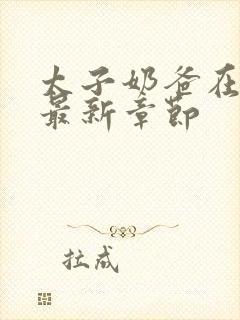 太子奶爸在
最新章节
拉成